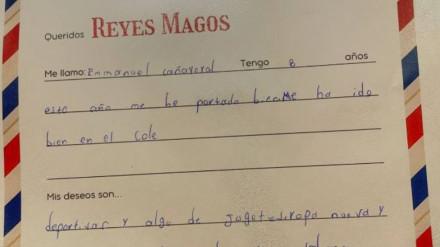 Queridos REYES MAGOS
Me llamo: Emmanuel cañaveral Tengo 8 años
este año me he portado bien Me ha ido
bien en el cole
Mis deseos son...
deportivas y algo de ropa nueva y